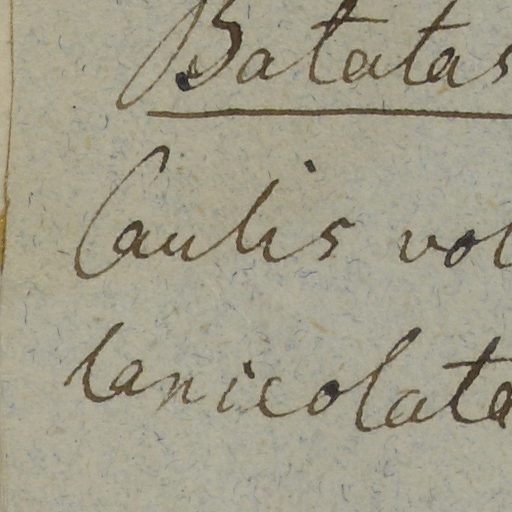 Batatas
Caulis vol
lanieolata